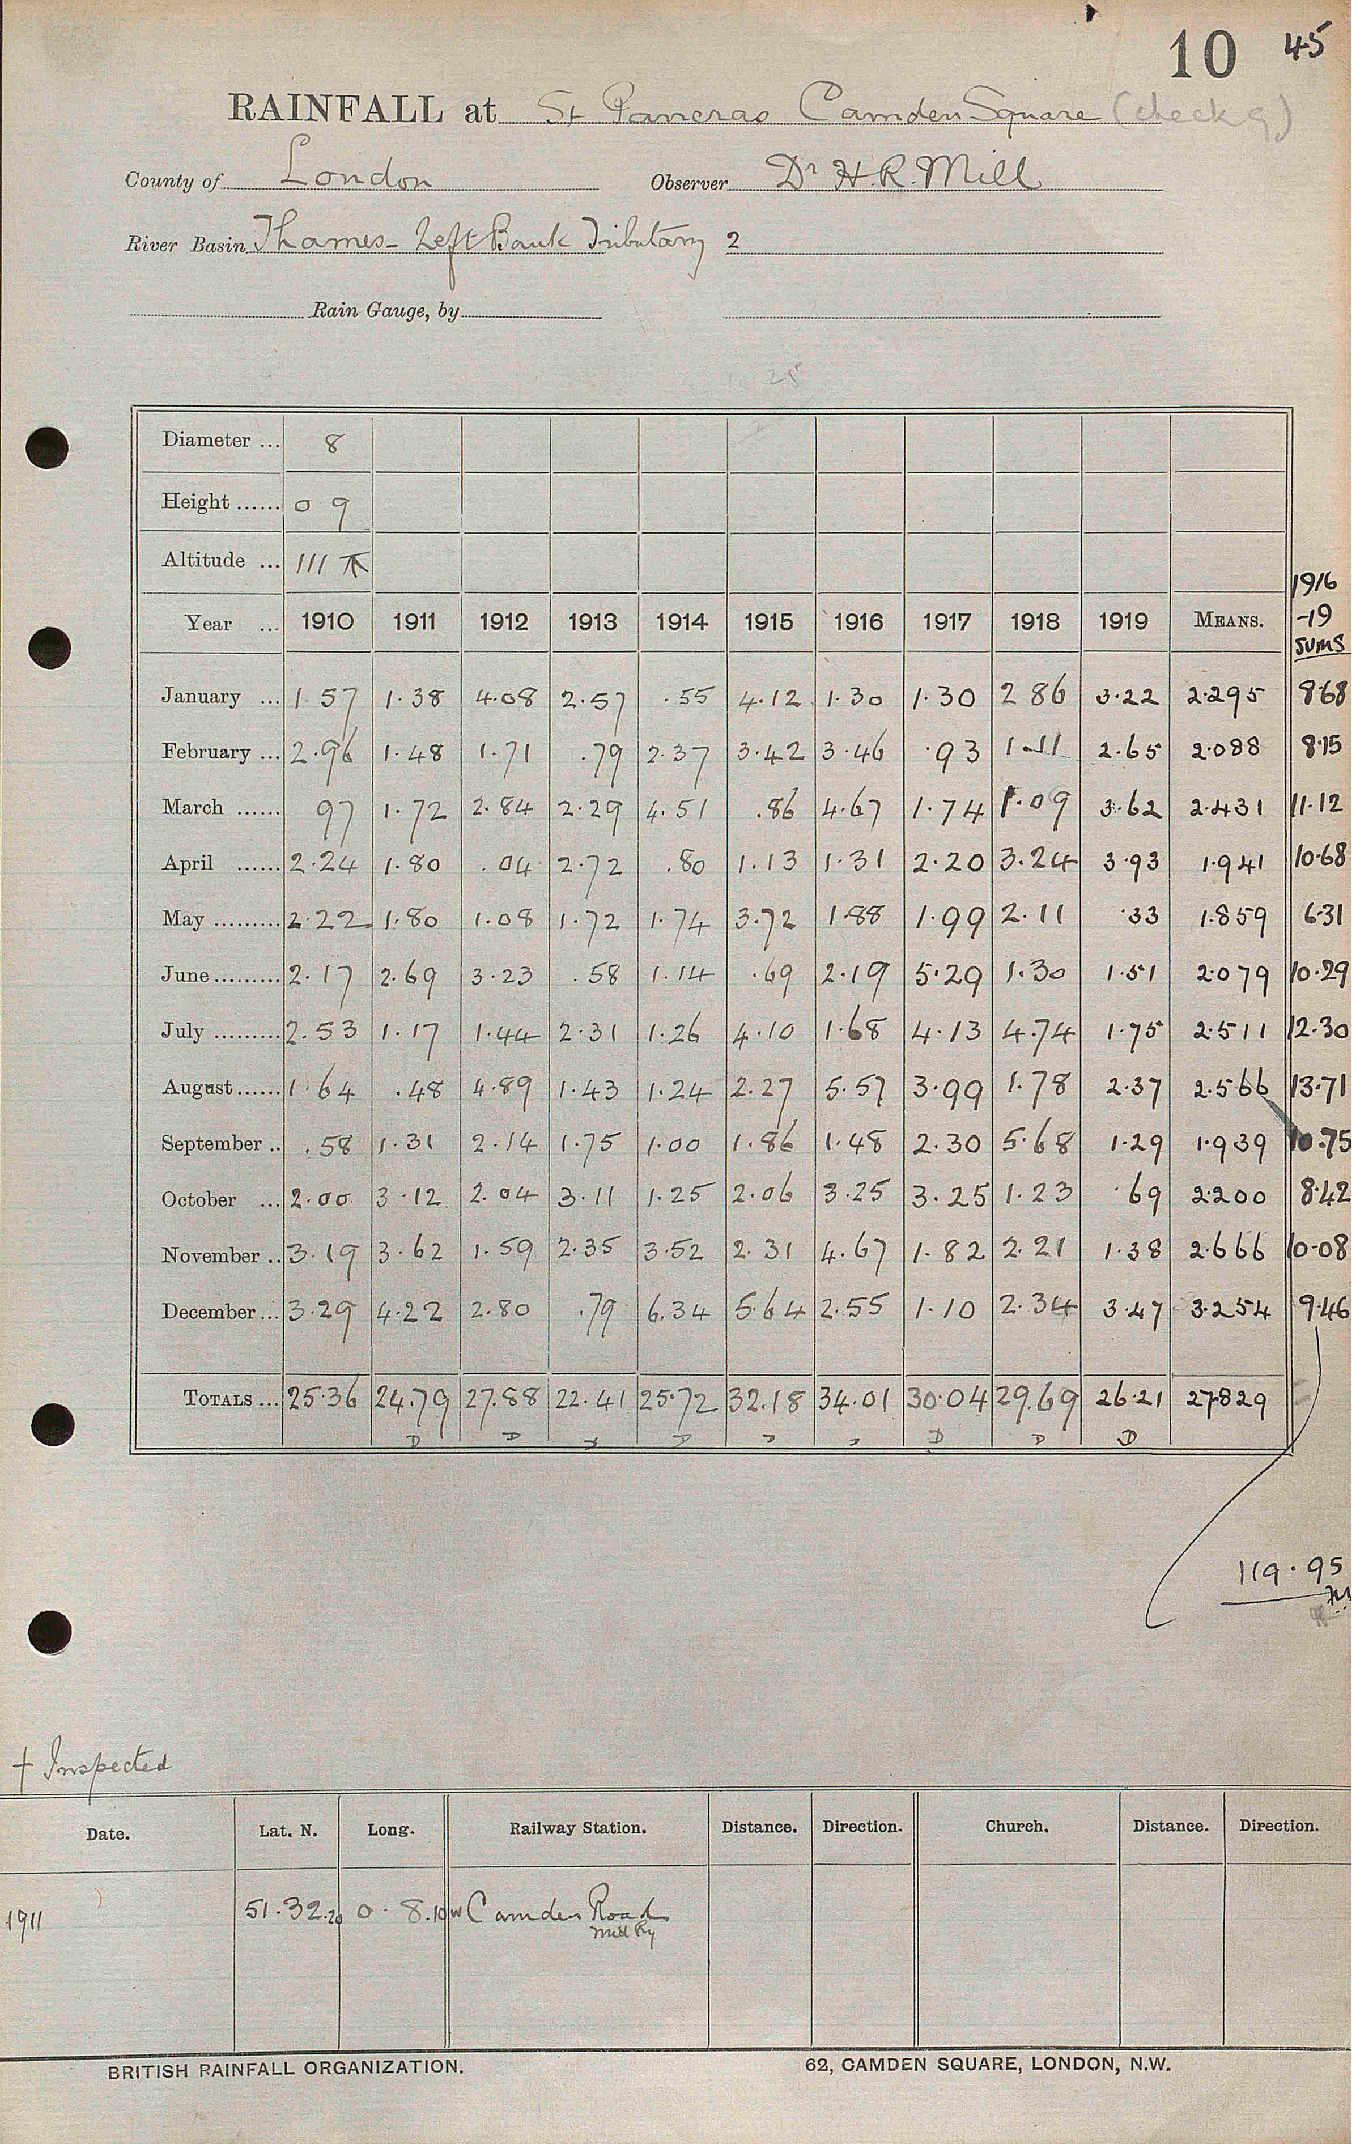 10 45
RAINFALL at St Pancras Camden Square (check g)
County of London Observer Dr H. R. Mill
River Basin Thames - Left Bank Tributary 2
Rain Gauge, by
Diameter ... 8
Height ...... 0 9
Altitude ... 111
1916
Year ... 1910 1911 1912 1913 1914 1915 1916 1917 1918 1919 MEANS. -19
SUMS
January ... 1.57 1.38 4.08 2.57 .55 4.12 1.30 1.30 2 86 3.22 2.295 8.68
February ... 2.96 1.48 1.71 .79 2.37 3.42 3.46 .93 1.11 2.65 2.088 8.15
March ...... 97 1.72 2.84 2.29 4.51 .86 4.67 1.74 1.09 3.62 2.431 11.12
April ...... 2.24 1.80 .04 2.72 .80 1.13 1.31 2.20 3.24 3.93 1.941 10.68
May ......... 2.22 1.80 1.08 1.72 1.74 3.72 1.88 1.99 2.11 .33 1.859 6.31
June ......... 2.17 2.69 3.23 .58 1.14 .69 2.19 5.29 1.30 1.51 2.079 10.29
July ......... 2.53 1.17 1.44 2.31 1.26 4.10 1.68 4.13 4.74 1.75 2.511 12.30
August ...... 1.64 .48 4.89 1.43 1.24 2.27 5.57 3.99 1.78 2.37 2.566 13.71
September .. .58 1.31 2.14 1.75 1.00 1.86 1.48 2.30 5.68 1.29 1.939 10.75
October ... 2.00 3.12 2.04 3.11 1.25 2.06 3.25 3.25 1.23 .69 2.200 8.42
November .. 3.19 3.62 1.59 2.35 3.52 2.31 4.67 1.82 2.21 1.38 2.666 10.08
December ... 3.29 4.22 2.80 .79 6.34 5.64 2.55 1.10 2.34 3.47 3.254 9.46
TOTALS ... 25.36 24.79 27.88 22.41 25.72 32.18 34.01 30.04 29.69 26.21 27.829
D D D D D D
119.95
† Inspected
Date. Lat. N. Long. Railway Station. Distance. Direction. Church. Distance. Direction.
1911 51.32.20 0.8.10W Camden Road
Mid Ry
BRITISH RAINFALL ORGANIZATION. 62, CAMDEN SQUARE, LONDON, N.W.